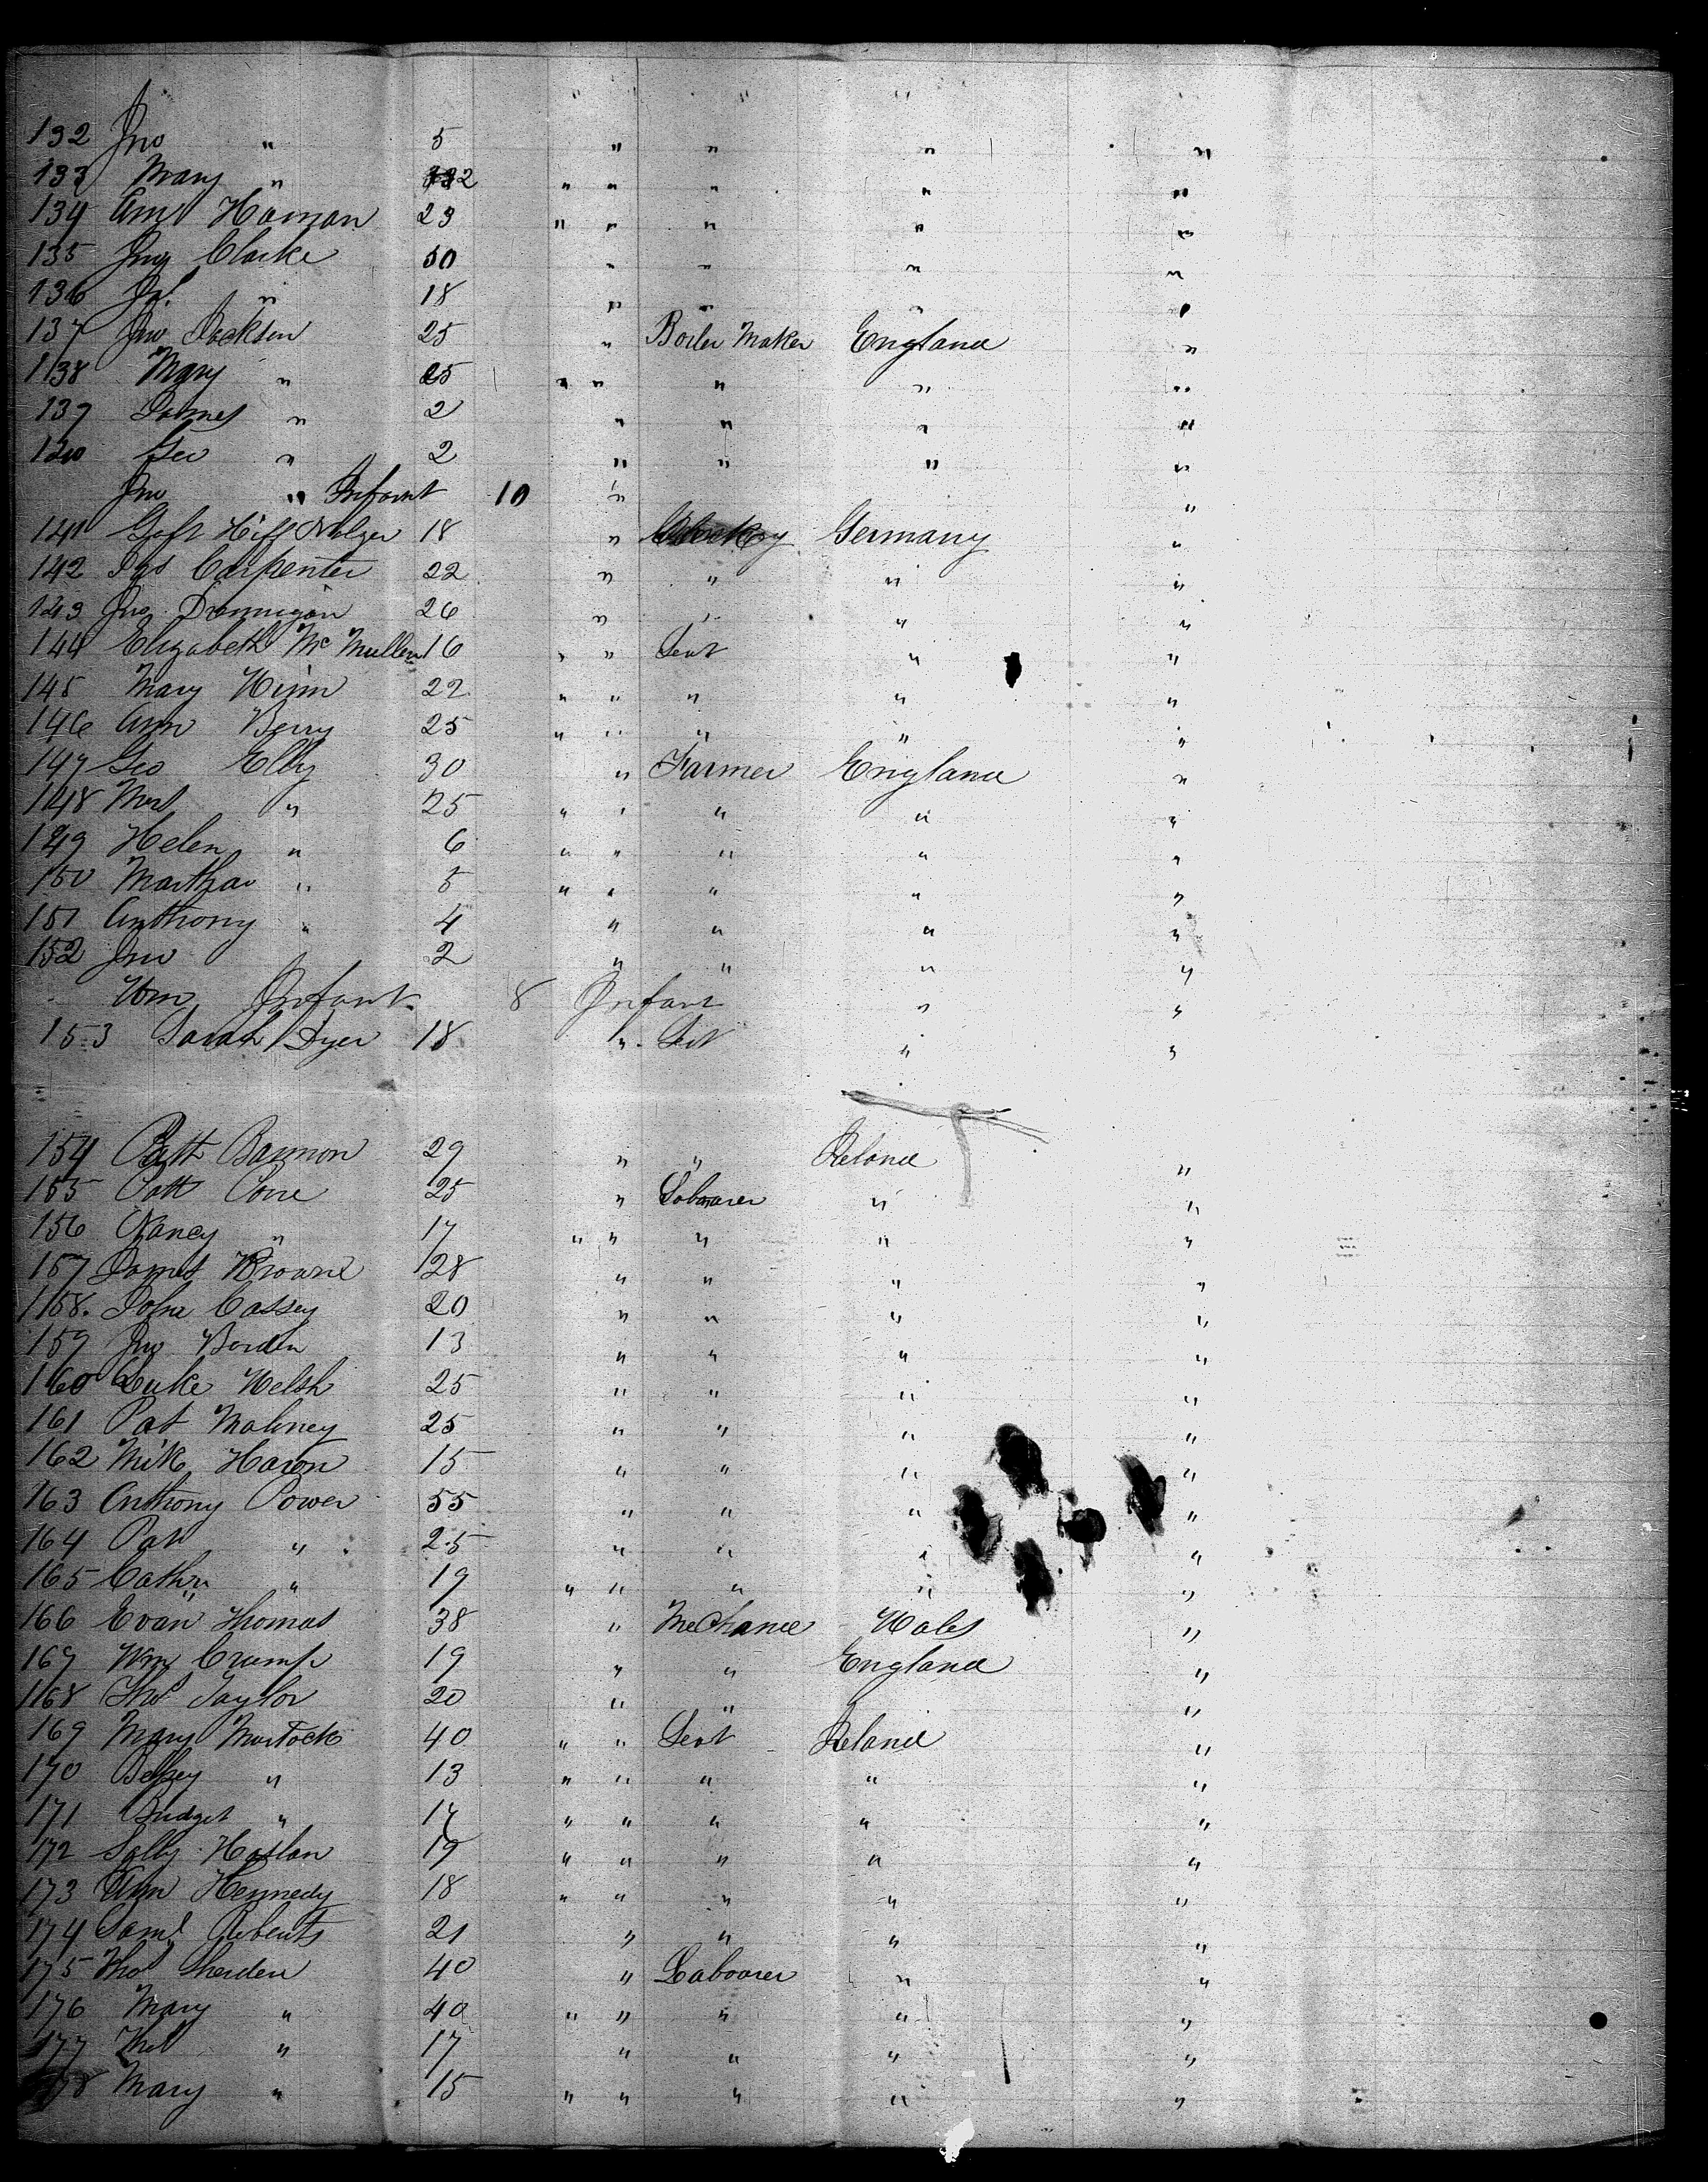 " " "
132 Jno " 5 " " " "
133 Mary " 2 " " " " "
134 Haman 23 " " " " "
135 Jno Clarke 50 " " " "
136 " 18 " " " "
137 Jno Jackson 25 " Boiler Maker England "
138 Mary " 25 " " " " "
139 James " 2 " " " "
140 Geo " 2 " " " "
Jno " Infant 10 " "
141 18 " Germany "
142 Carpenter 22 " " " "
143 Jno Drannigan 26 " " " "
144 Elizabeth Mc Mullen 16 " " Sevt " "
145 Mary 22 " " " " "
146 Ann Berry 25 " " " " "
147 Geo Elby 30 " Farmer England "
148 Mrs " 25 " " " " "
149 Helen " 6 " " " " "
150 Martha " 5 " " " " "
151 Anthony " 4 " " " "
152 Jno 2 " " " "
Wm Infant 8 Infant " "
153 Sarah Dyer 18 " Sevt " "
154 Patt Bannon 29 " " Ireland "
155 Patt Cone 25 " Labourer " "
156 Nancy " 17 " " " " "
157 James Browne 28 " " " "
158. John Cassey 20 " " " "
159 Jno Borden 13 " " " "
160 Luke Welsh 25 " " " "
161 Pat Mahney 25 " " " "
162 Mik Haron 15 " " " "
163 Anthony Power 55 " " " "
164 Pat " 25 " " " "
165 Cathn " 19 " " " " "
166 Evan Thomas 38 " Mechanic Wales "
167 Wm Crump 19 " " England "
168 Thos Taylor 20 " " "
169 Mary Murtock 40 " " Sevt Ireland "
170 Betsey " 13 " " " " "
171 Bridget " 17 " " " " "
172 Sally Haslan 19 " " " " "
173 Ann Hennedy 18 " " " " "
174 Saml Roberts 21 " " " "
175 Thos Sherden 40 " Labourer " "
176 Mary " 40 " " " " "
177 Thos " 17 " " " "
178 Mary " 15 " " " " "